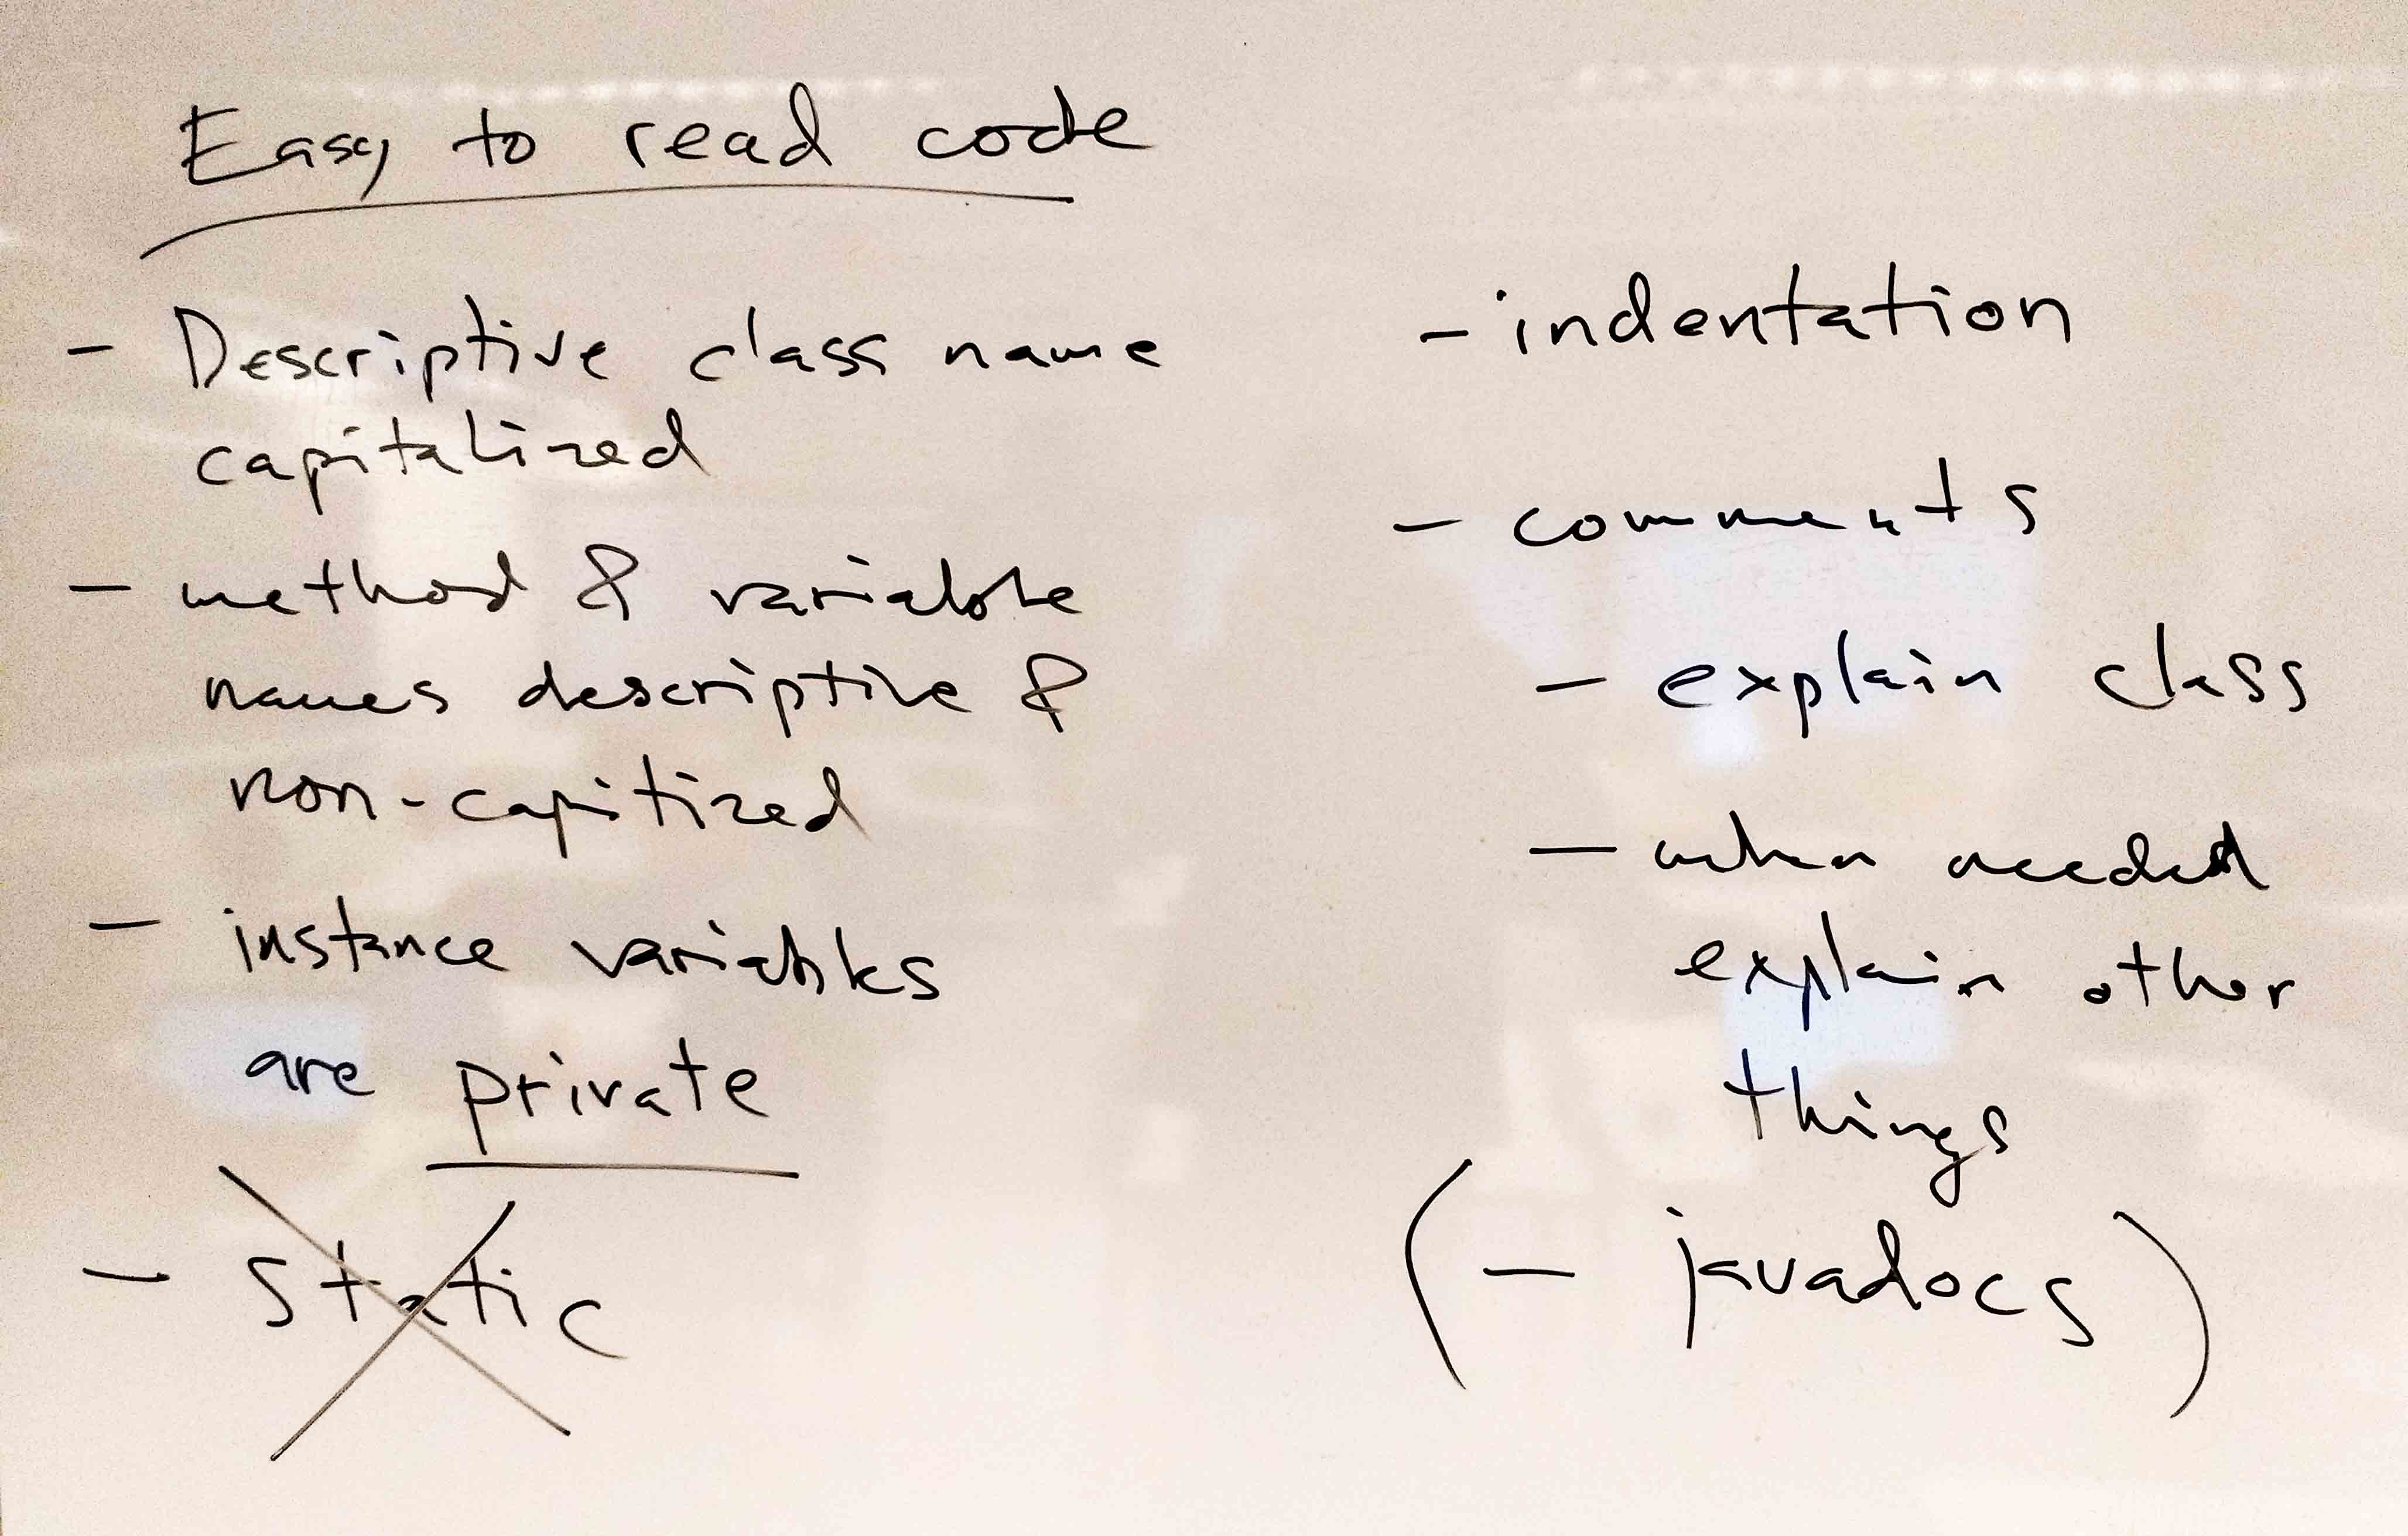 Easy to read code
- Descriptive class name
capitalized
- method & variable
names descriptive &
non-capitized
- instance variables
are private
- static
- indentation
- comments
- explain class
- when needed
explain other
things
(- javadocs)